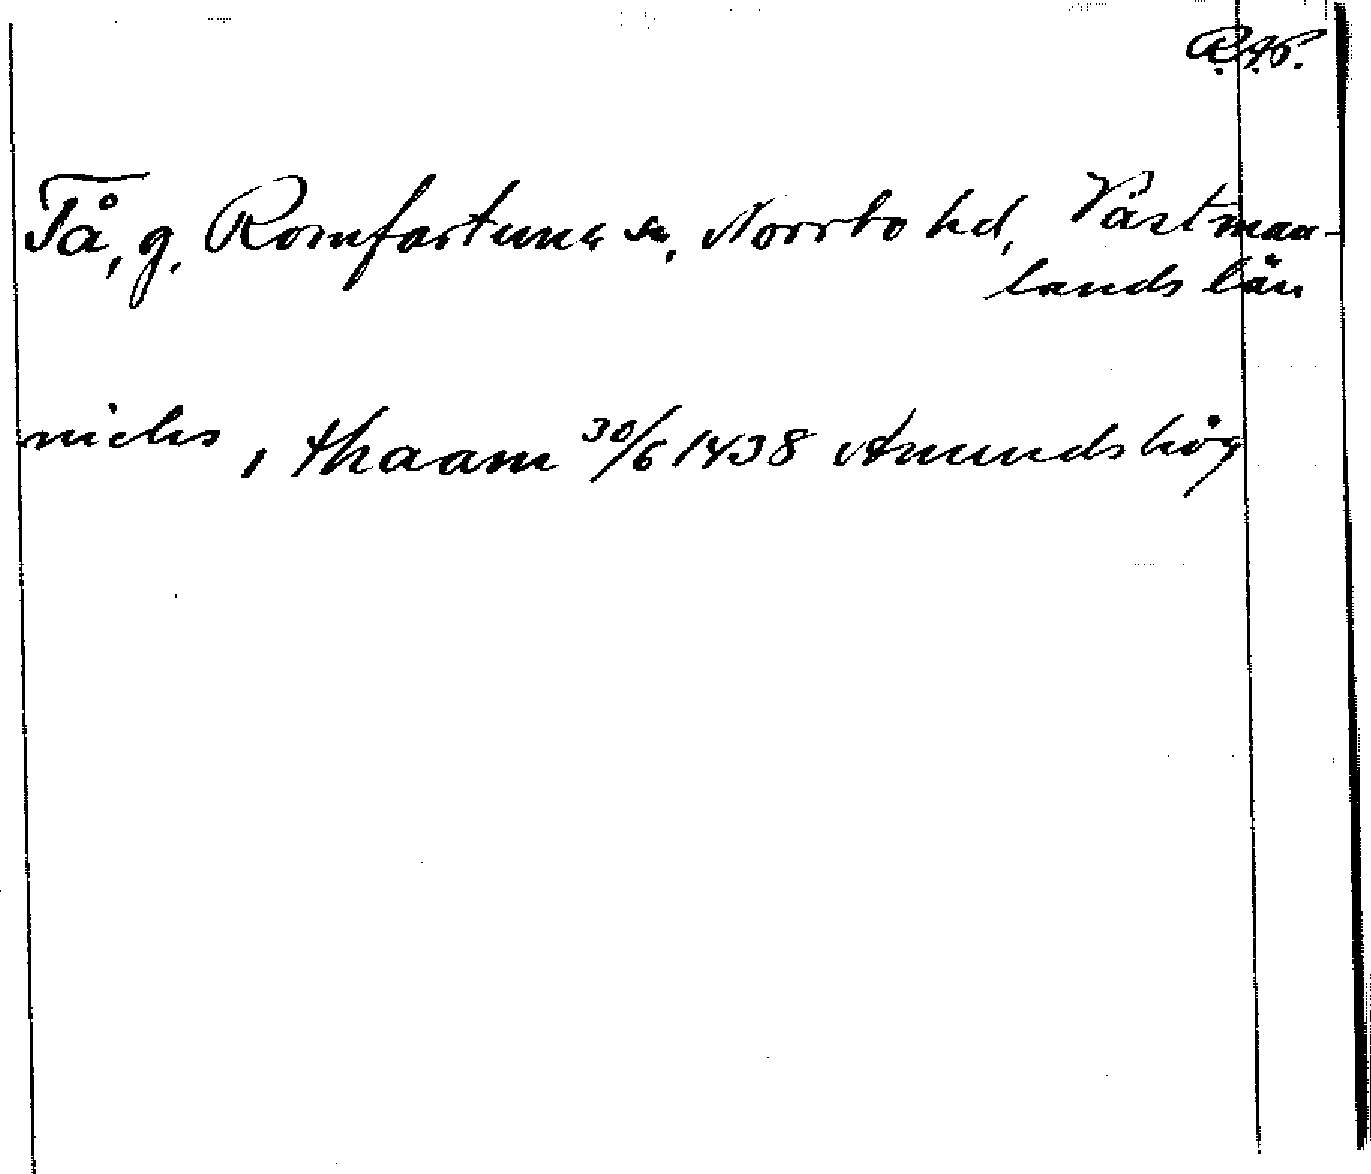 R.A.P.
Tå, g. Romfartuna sn, Norrbo hd, Västman-
lands län
nichis, i thaam 30/6 1438 Amundshög